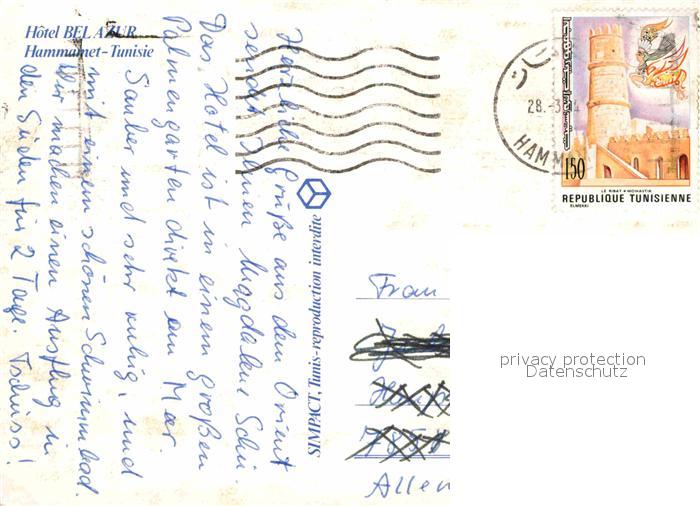 Hôtel BEL AZUR
Hammamet-Tunisie
Herzliche Grüße aus dem Orient
sendet Ihnen Magdalene Schu.
Das Hotel ist in einem großen
Palmengarten direkt am Meer.
Sauber und sehr ruhig, und
mit einem schönen Schwimmbad.
Wir machen einen Ausflug in
den Süden für 2 Tage. Tschüss!
SIMPACT, Tunis-reproduction interdite
28.-3.
HAMM
150
LE RIBAT • MONASTIR
REPUBLIQUE TUNISIENNE
ELMEKKI
Frau
Allem
privacy protection
Datenschutz